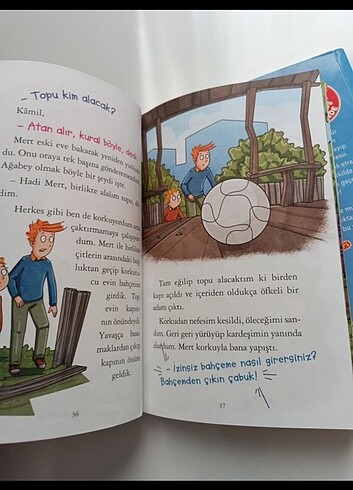 – Topu kim alacak?
Kâmil,
– Atan alır, kural böyle, dedi
Mert eski eve bakarak yeniden
du. Onu oraya tek başına gönderemezdim
Ağabey olmak böyle bir şeydi işte.
– Hadi Mert, birlikte alalım topu, de-
dim.
Herkes gibi ben de korkuyordum ama
çaktırmamaya çalışıyor-
dum. Mert ile birlikte
çitlerin arasındaki boş-
luktan geçip korkunç
cu evin bahçesine
girdik. Top,
evin kapısı-
nın önündeydi.
Yavaşça basa-
maklardan çıkıp
kapının önüne
geldik.
36
Tam eğilip topu alacaktım ki birden
kapı açıldı ve içeriden oldukça öfkeli bir
adam çıktı.
Korkudan nefesim kesildi, öleceğimi san-
dım. Geri geri yürüyüp kardeşimin yanında
durdum. Mert korkuyla bana yapıştı.
– İzinsiz bahçeme nasıl girersiniz?
Bahçemden çıkın çabuk!
37